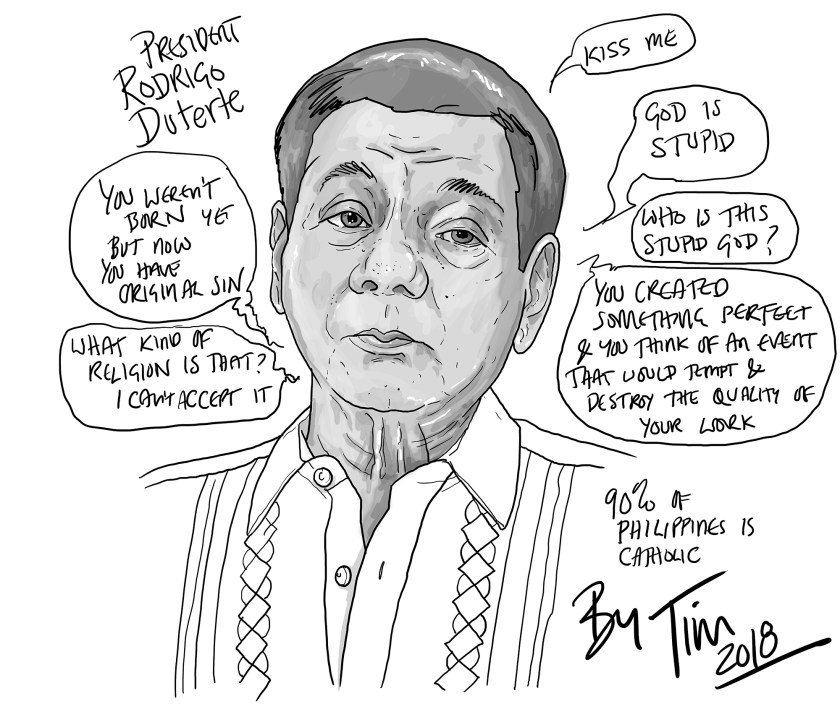 PRESIDENT
RODRIGO
DUTERTE
KISS ME
GOD IS
STUPID
WHO IS THIS
STUPID GOD?
YOU CREATED
SOMETHING PERFECT
& YOU THINK OF AN EVENT
THAT WOULD TEMPT &
DESTROY THE QUALITY OF
YOUR WORK
YOU WEREN'T
BORN YE
BUT NOW
YOU HAVE
ORIGINAL SIN
WHAT KIND OF
RELIGION IS THAT?
I CAN'T ACCEPT IT
90% OF
PHILIPPINES IS
CATHOLIC
By Tim
2018